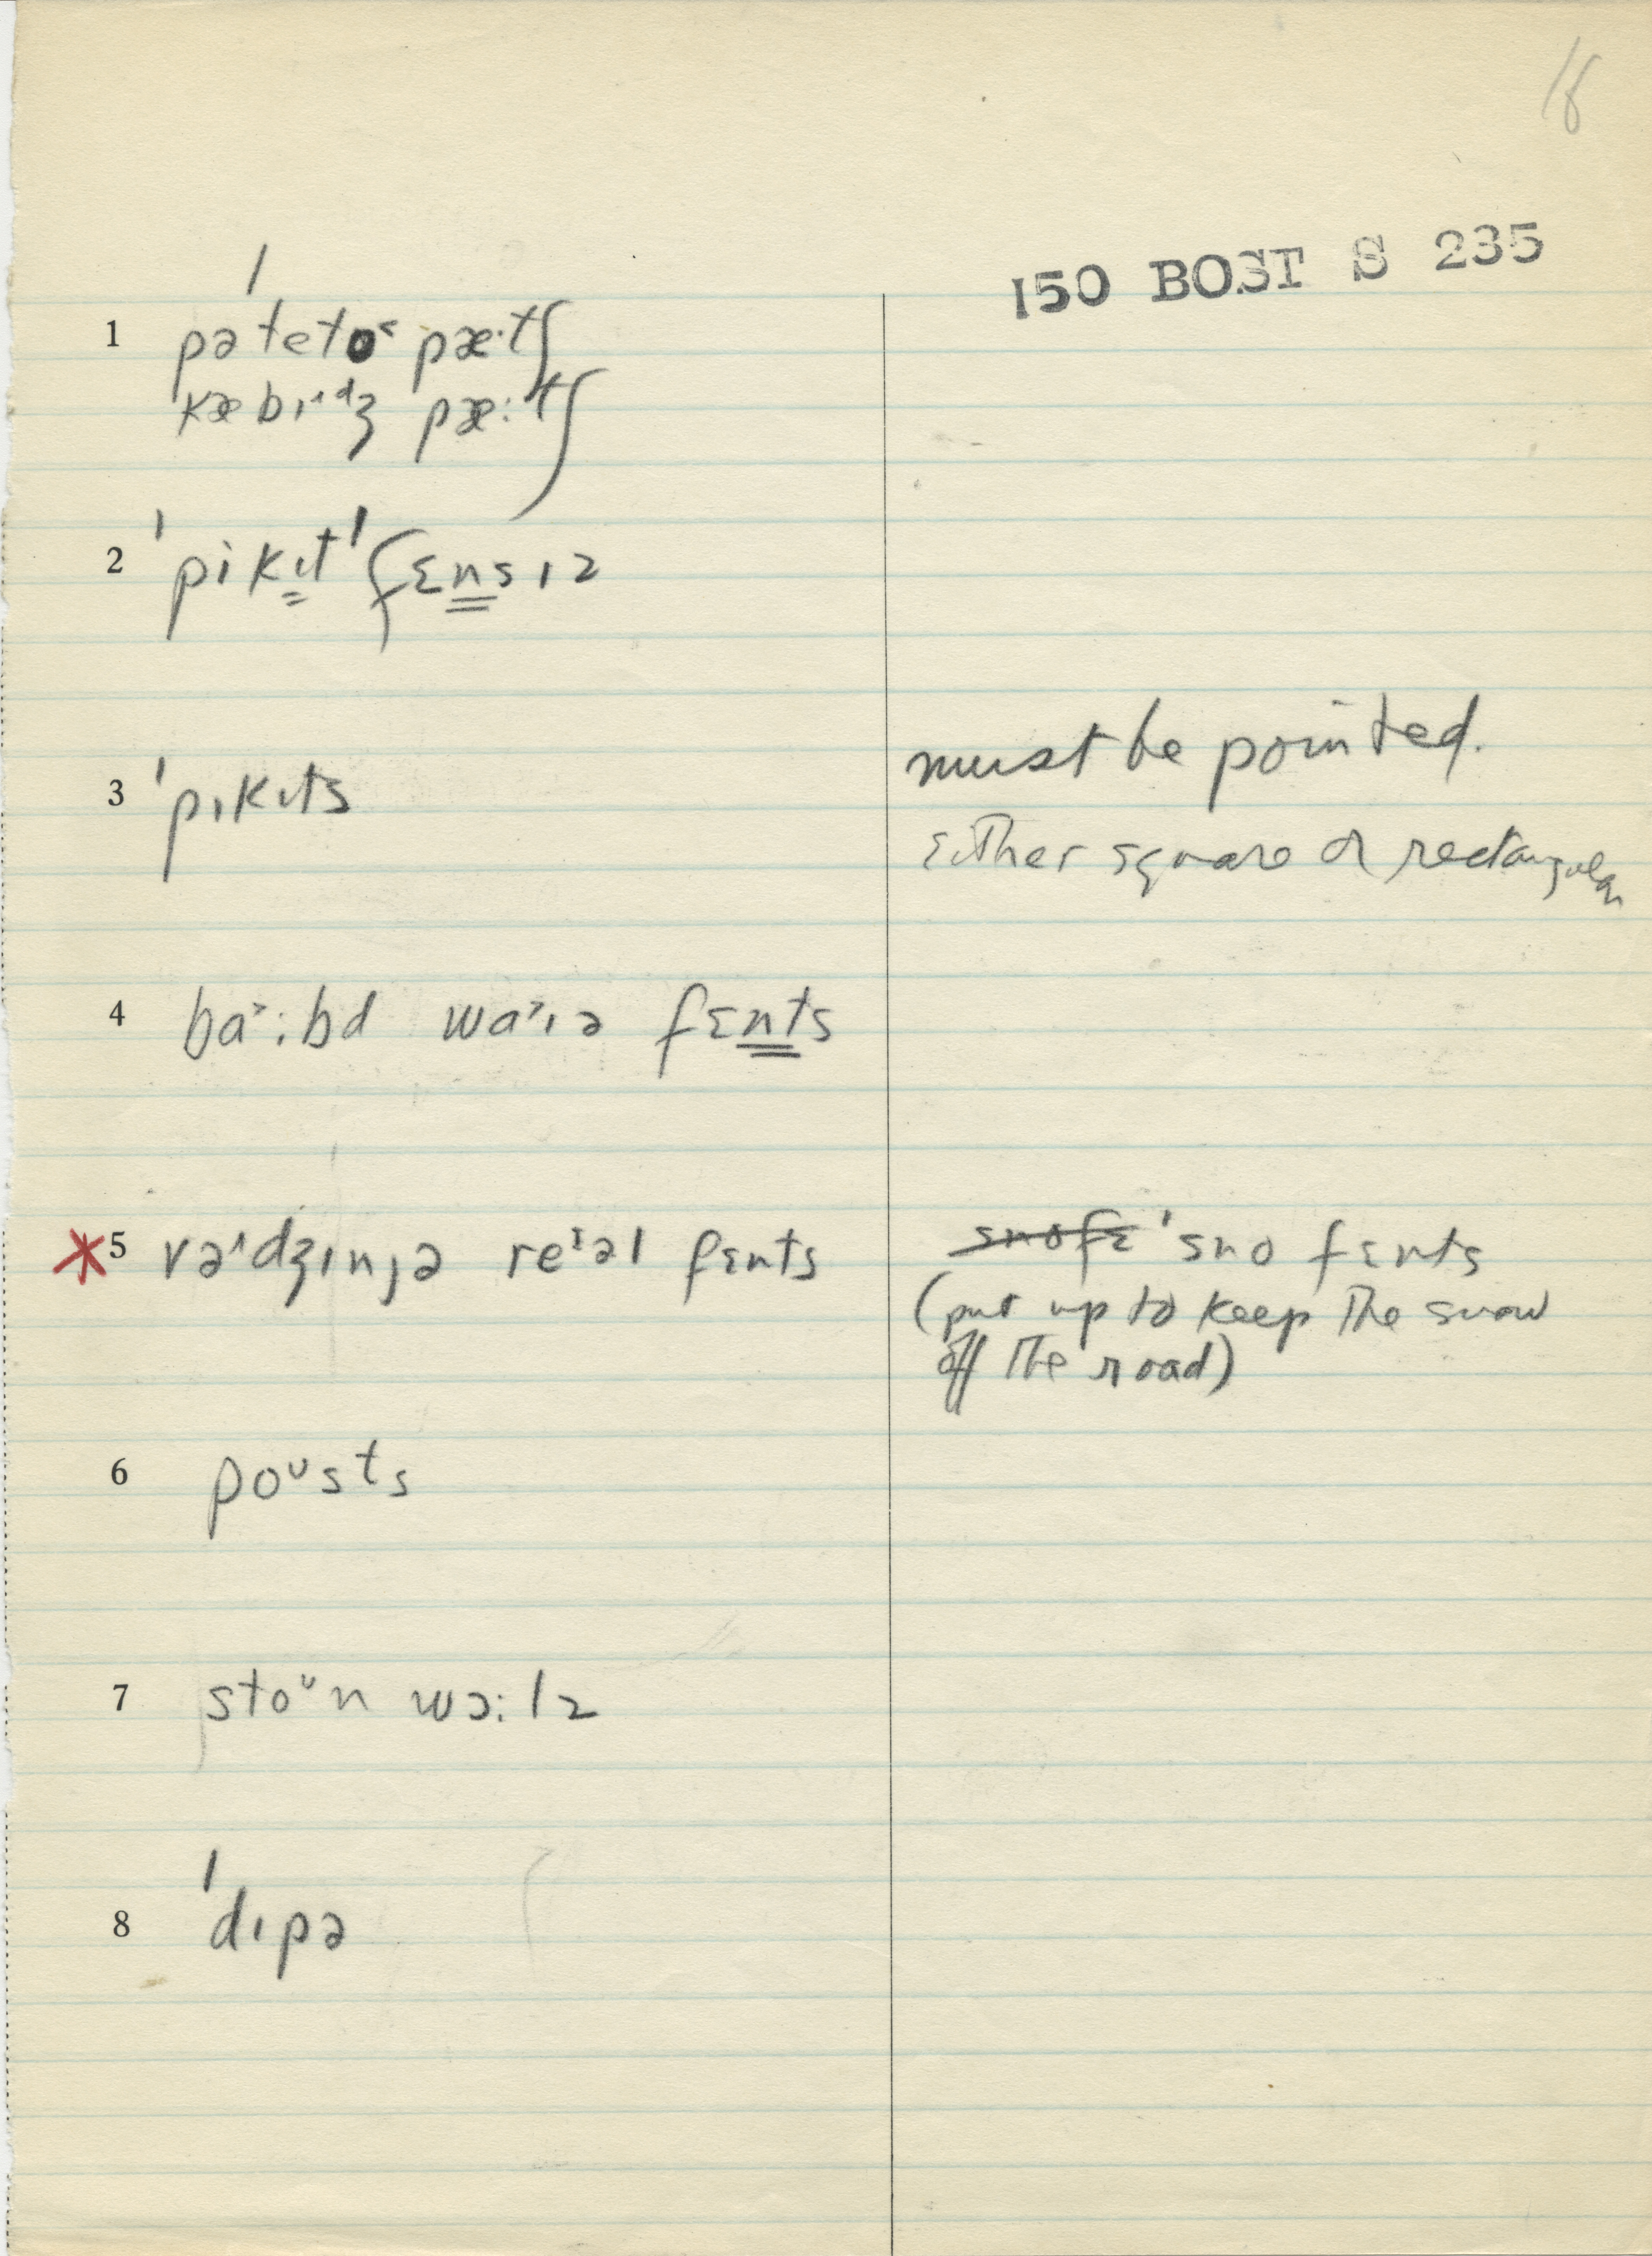 18
150 BOST S 235
1 pəˈteto˂ pæ·tʃ
kæbɪ˄dʒ pæ:tʃ
2 ˈpikɪt ˈfɛnsɪz
3 ˈpɪkɪts
must be pointed.
either square or rectangular
4 ba˃:bd wa˃ɪə fɛnts
*5 və˄dʒɪnjə reɪəl fɛnts
snofɛ ˈsno fɛnts
(put up to keep the snow
off the road)
6 poᴜsts
7 stoᴜn wɔ:lz
8 ˈdɪpə